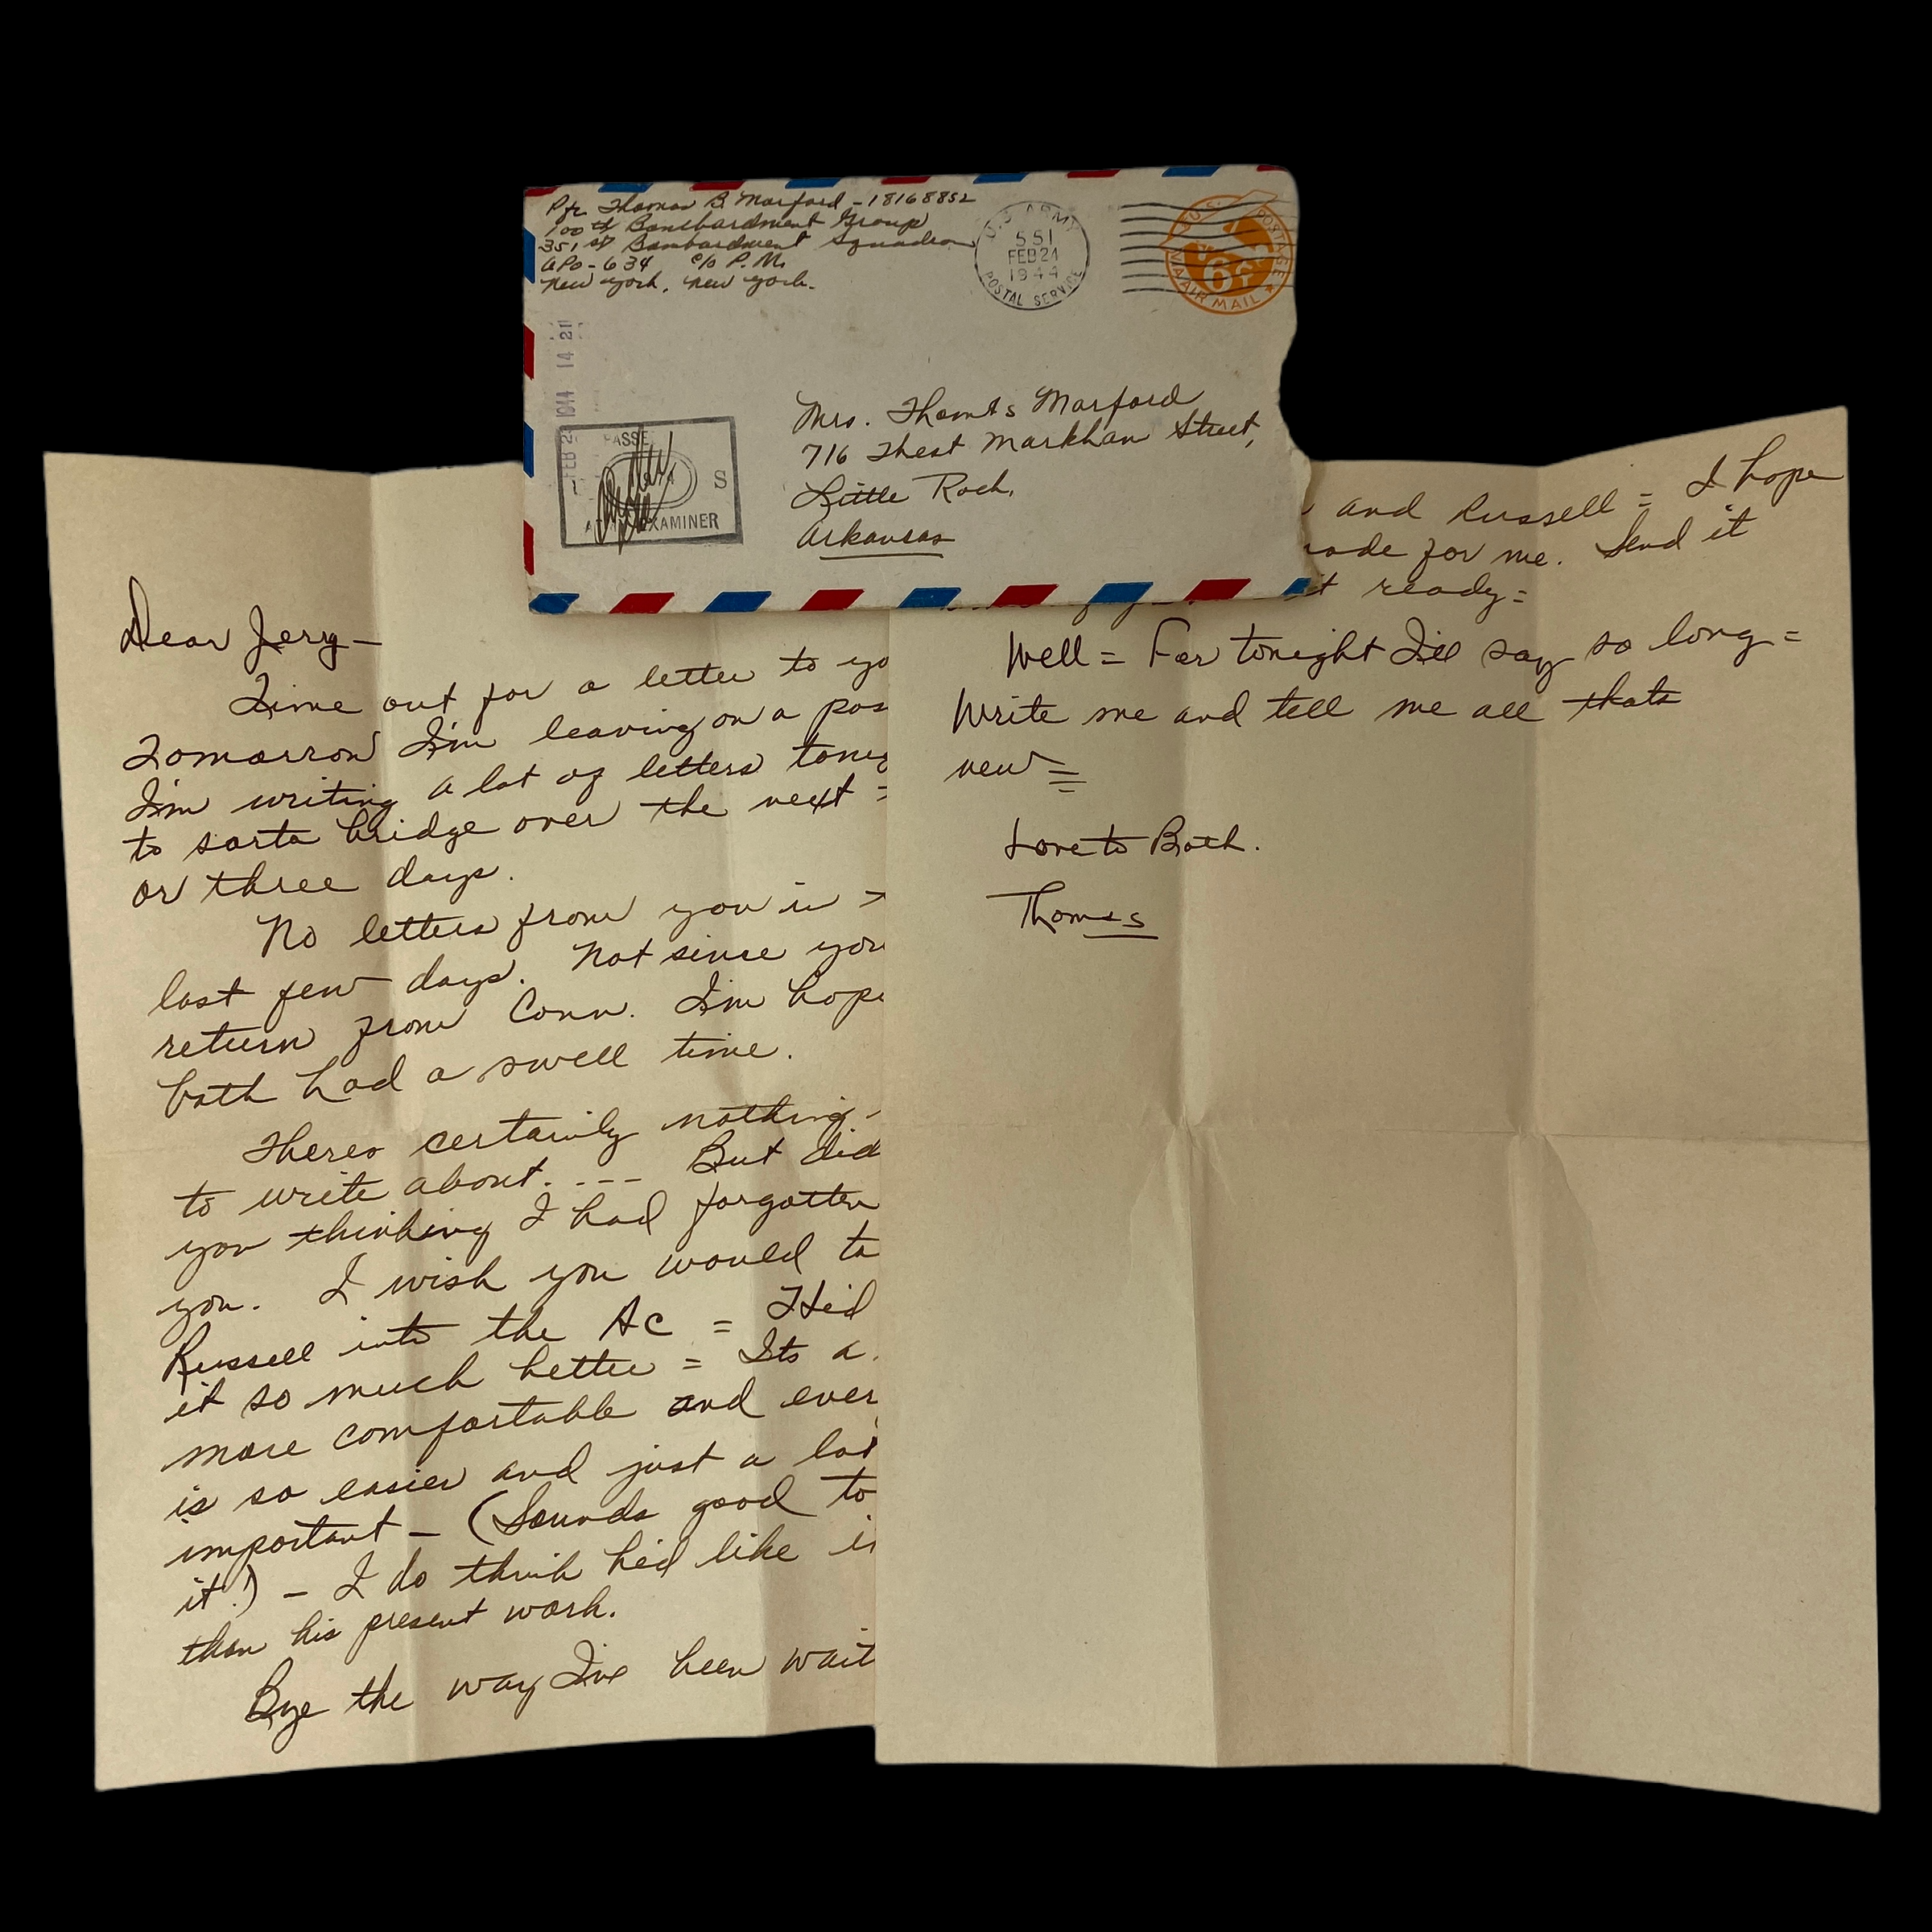 Pfc Thomas B. Marford - 18168852
100th Bombardment Group
351st Bombardment Squadron
APO - 634 c/o P.M.
New York, New York.
U.S. ARMY
551
FEB 24
1944
POSTAL SERVICE
U.S. POSTAGE
6¢
VIA AIR MAIL
1944 14 21
PASSE
S
EXAMINER
Mrs. Thomas Marford
716 West Markham Street,
Little Rock,
Arkansas
Dear Jerry —
Time out for a letter to yo
Tomorrow I'm leaving on a pas
I'm writing a lot of letters tonig
to sorta bridge over the next =
or three days.
No letters from you in
last few days. Not since you
return from Conn. I'm hope
both had a swell time.
Theres certainly nothing
to write about. --- But did
you thinking I had forgotten
you. I wish you would ta
Russell into the AC = Hed
it so much better = Its a
more comfortable and ever
is so easier and just a lot
important — (Sounds good to
it!) — I do think he'd like i
than his present work.
Bye the way I've been wait
and Russell = I hope
ade for me. Send it
t ready =
Well = For tonight I'll say so long =
Write me and tell me all thats
new =
Love to Both.
Thomas